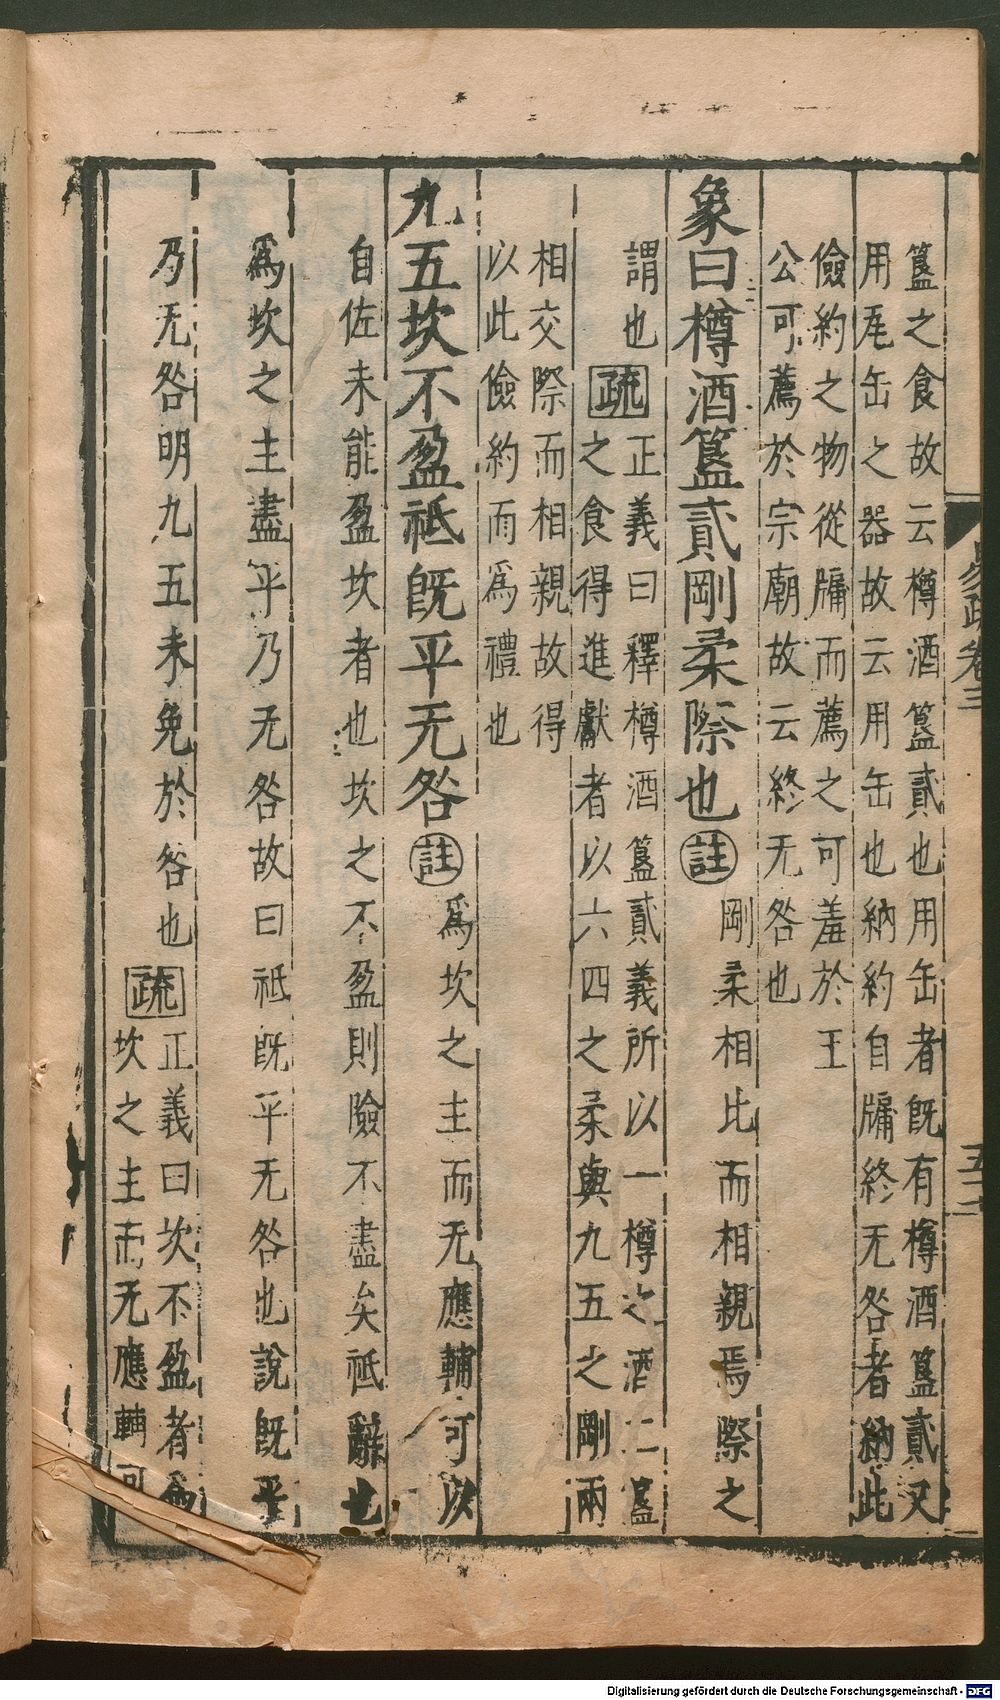 簋之食故云樽酒簋貳也用缶者既有樽酒簋貳又
用瓦缶之器故云用缶也納約自牖終无咎者納此
儉約之物從牖而薦之可羞於王
公可薦於宗廟故云終无咎也
象曰樽酒簋貳剛柔際也註剛柔相比而相親焉際之
謂也疏正義曰釋樽酒簋貳義所以一樽之酒二簋
之食得進獻者以六四之柔與九五之剛兩
相交際而相親故得
以此儉約而爲禮也
九五坎不盈祗既平无咎註爲坎之主而无應輔可以
自佐未能盈坎者也坎之不盈則險不盡矣祗辭也
爲坎之主盡平乃无咎故曰祗既平无咎也說既平
乃无咎明九五未免於咎也疏正義曰坎不盈者爲
坎之主而无應輔可
易疏卷三
Digitalisierung gefördert durch die Deutsche Forschungsgemeinschaft - DFG